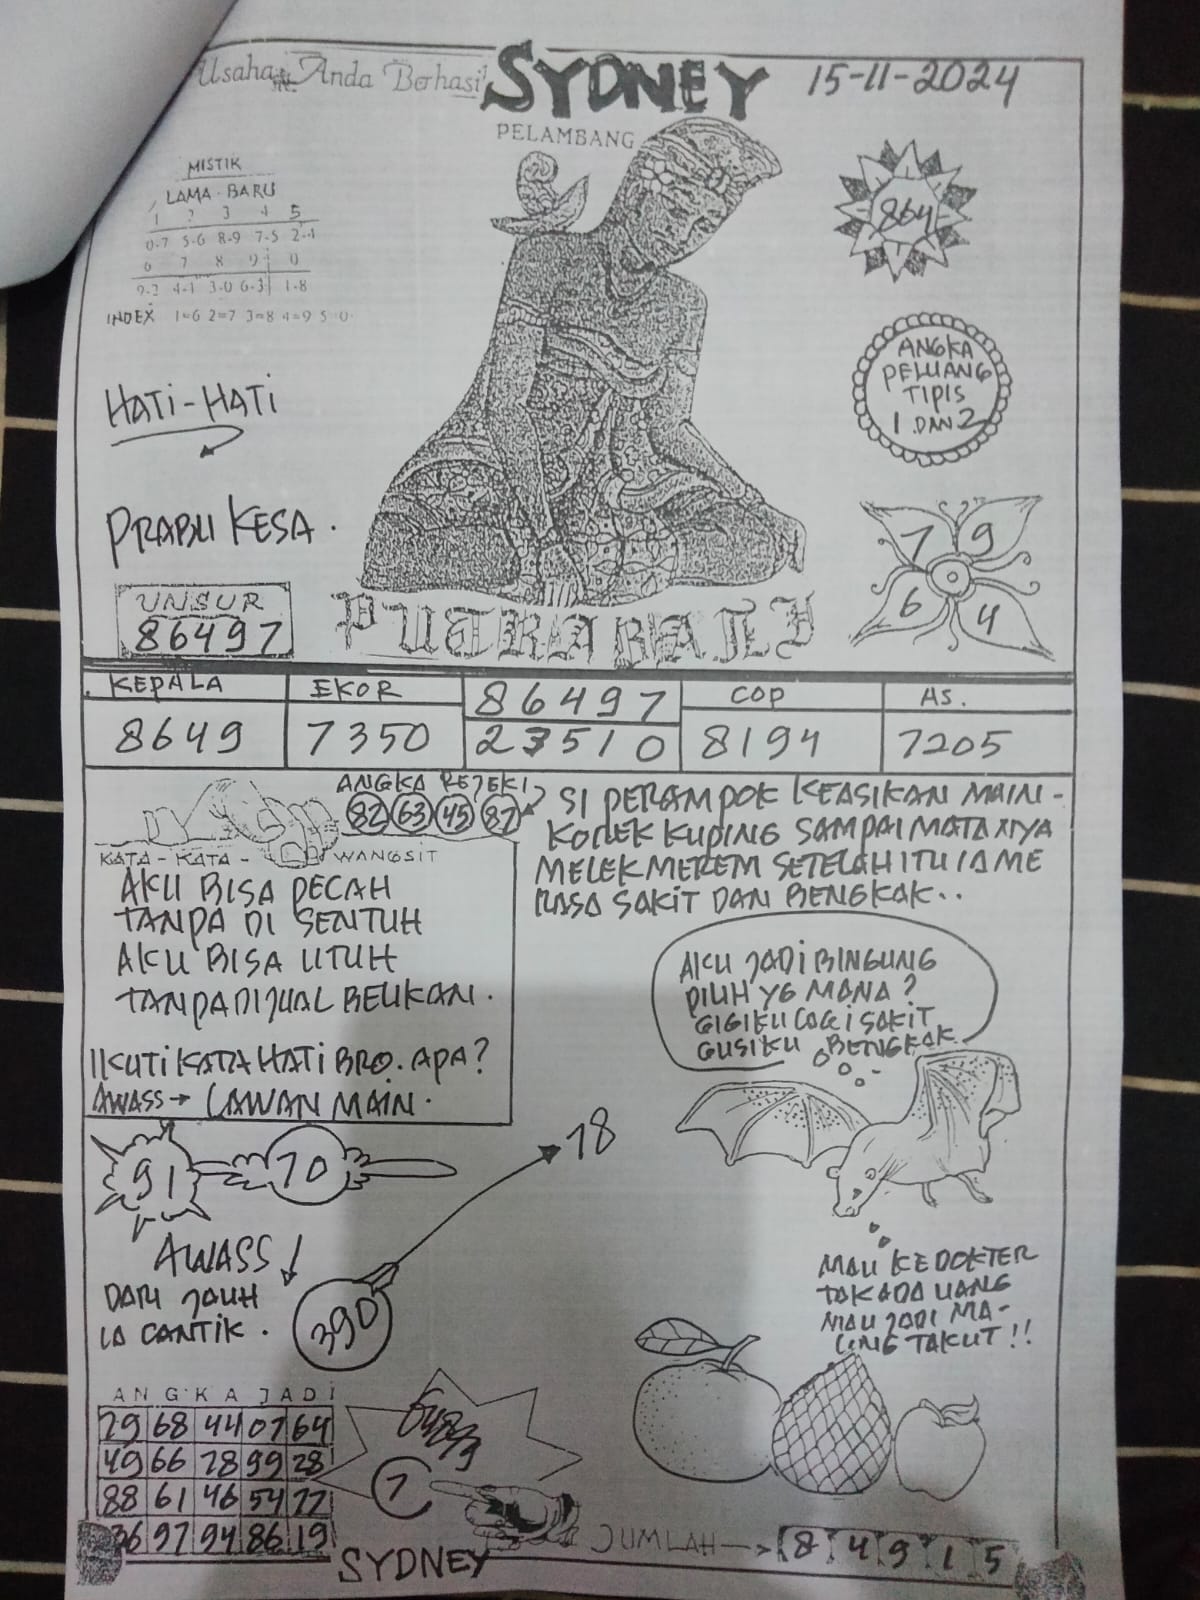 Usaha Anda Berhasil
SYDNEY
15-11-2024
PELAMBANG
MISTIK
LAMA - BARU
1 2 3 4 5
0-7 5-6 8-9 7-5 2-4
6 7 8 9 0
9-2 4-1 3-0 6-3 1-8
INDEX 1=6 2=7 3=8 4=9 5=0
864
ANGKA
PELUANG
TIPIS
1 DAN 2
HATI-HATI
PRABU KESA.
7 9
6 4
UNSUR
86497
PUTRA BALI
KEPALA
8649
EKOR
7350
86497
23510
COP
8194
AS.
7205
ANGKA REJEKI
82 63 45 87
KATA-KATA-WANGSIT
AKU BISA PECAH
TANPA DI SENTUH
AKU BISA UTUH
TANPA DIJUAL BELIKAN.
IKUTI KATA HATI BRO. APA?
AWASS → LAWAN MAIN.
SI PERAMPOK KEASIKAN MAIN-
KOREK KUPING SAMPAI MATAXIYA
MELEK MEREM SETELAH ITU IA ME
RASA SAKIT DAN BENGKAK..
AKU JADI BINGUNG
PILIH YG MANA?
GIGIKU LAGI SAKIT
GUSIKU BENGKAK
91 70
78
AWASS
DARI JAUH
IA CANTIK.
390
MAU KE DOKTER
TAK ADA UANG
MAU JADI MA-
LING TAKUT!!
ANGKA JADI
79 68 44 07 64
49 66 78 99 28
88 61 46 54 77
36 97 94 86 19
7
JUMLAH → 8 4 9 1 5
SYDNEY